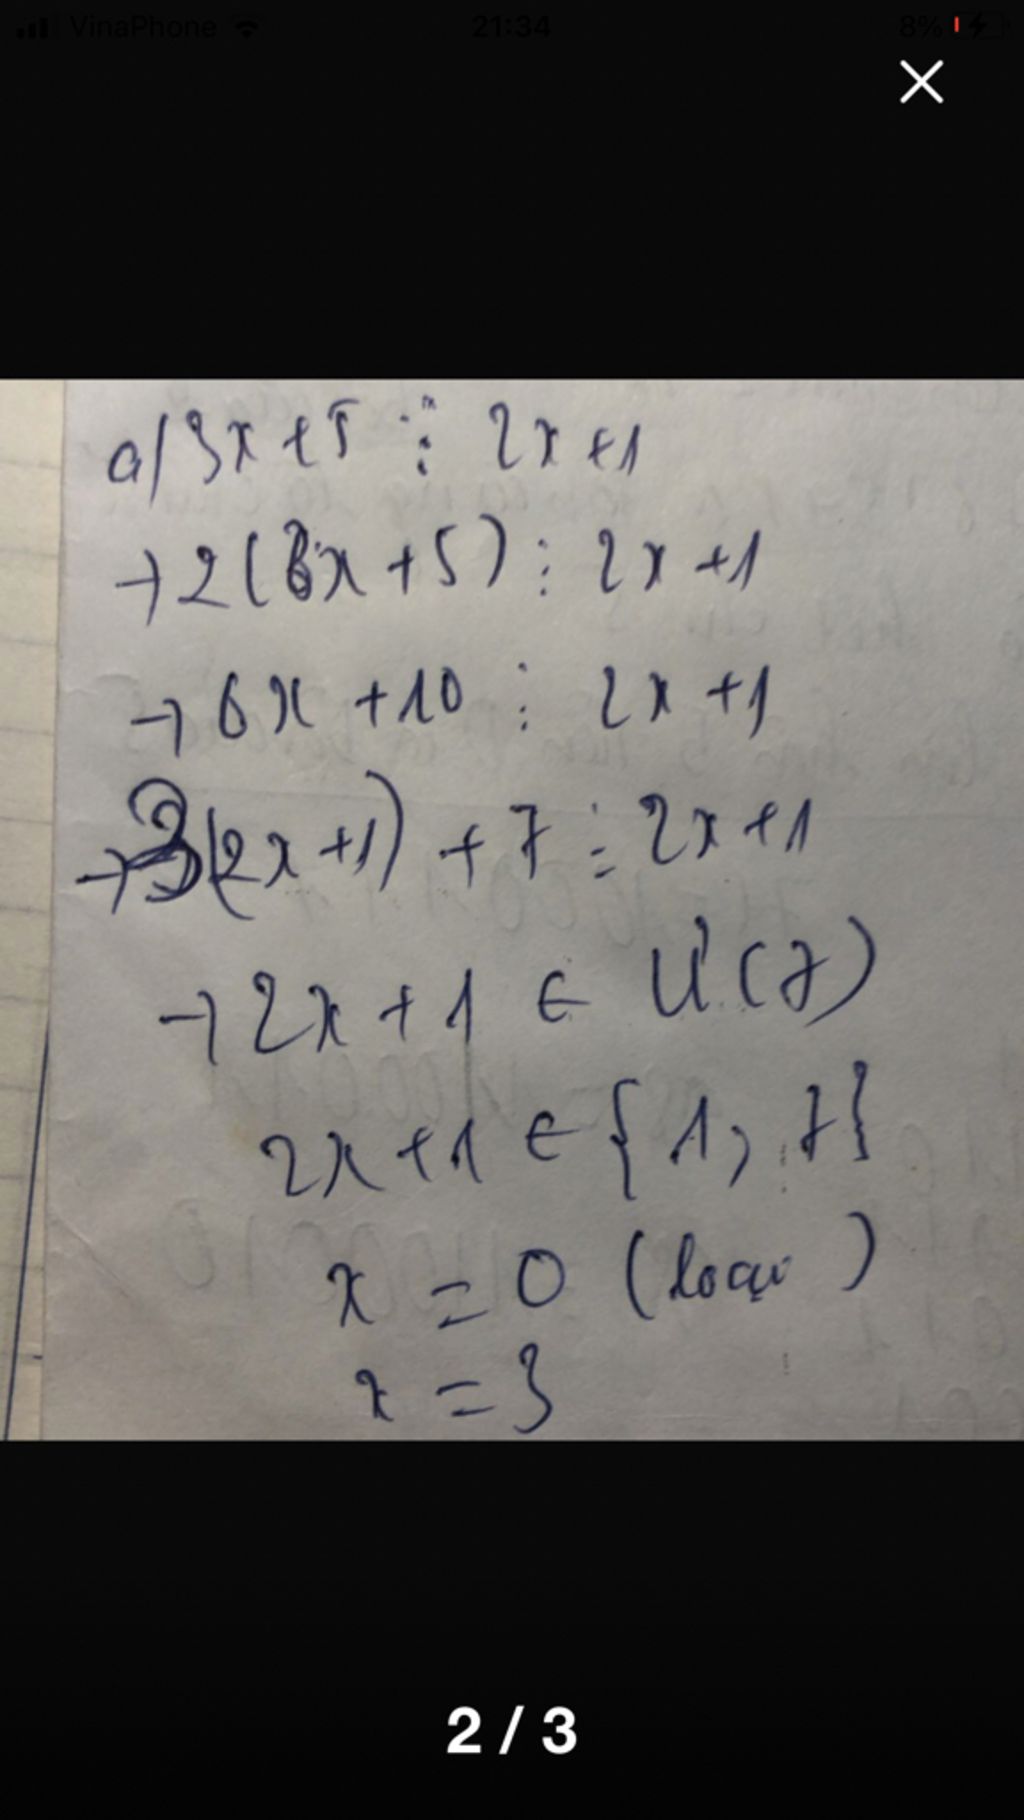 VinaPhone 21:34 8%
a/ 3x + 5 ⋮ 2x + 1
→ 2(3x + 5) ⋮ 2x + 1
→ 6x + 10 ⋮ 2x + 1
→ 3(2x + 1) + 7 ⋮ 2x + 1
→ 2x + 1 ∈ Ư(7)
2x + 1 ∈ {1; 7}
x = 0 (loại)
x = 3
2 / 3